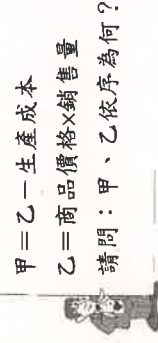 甲＝乙－生產成本
乙＝商品價格×銷售量
請問：甲、乙依序為何？